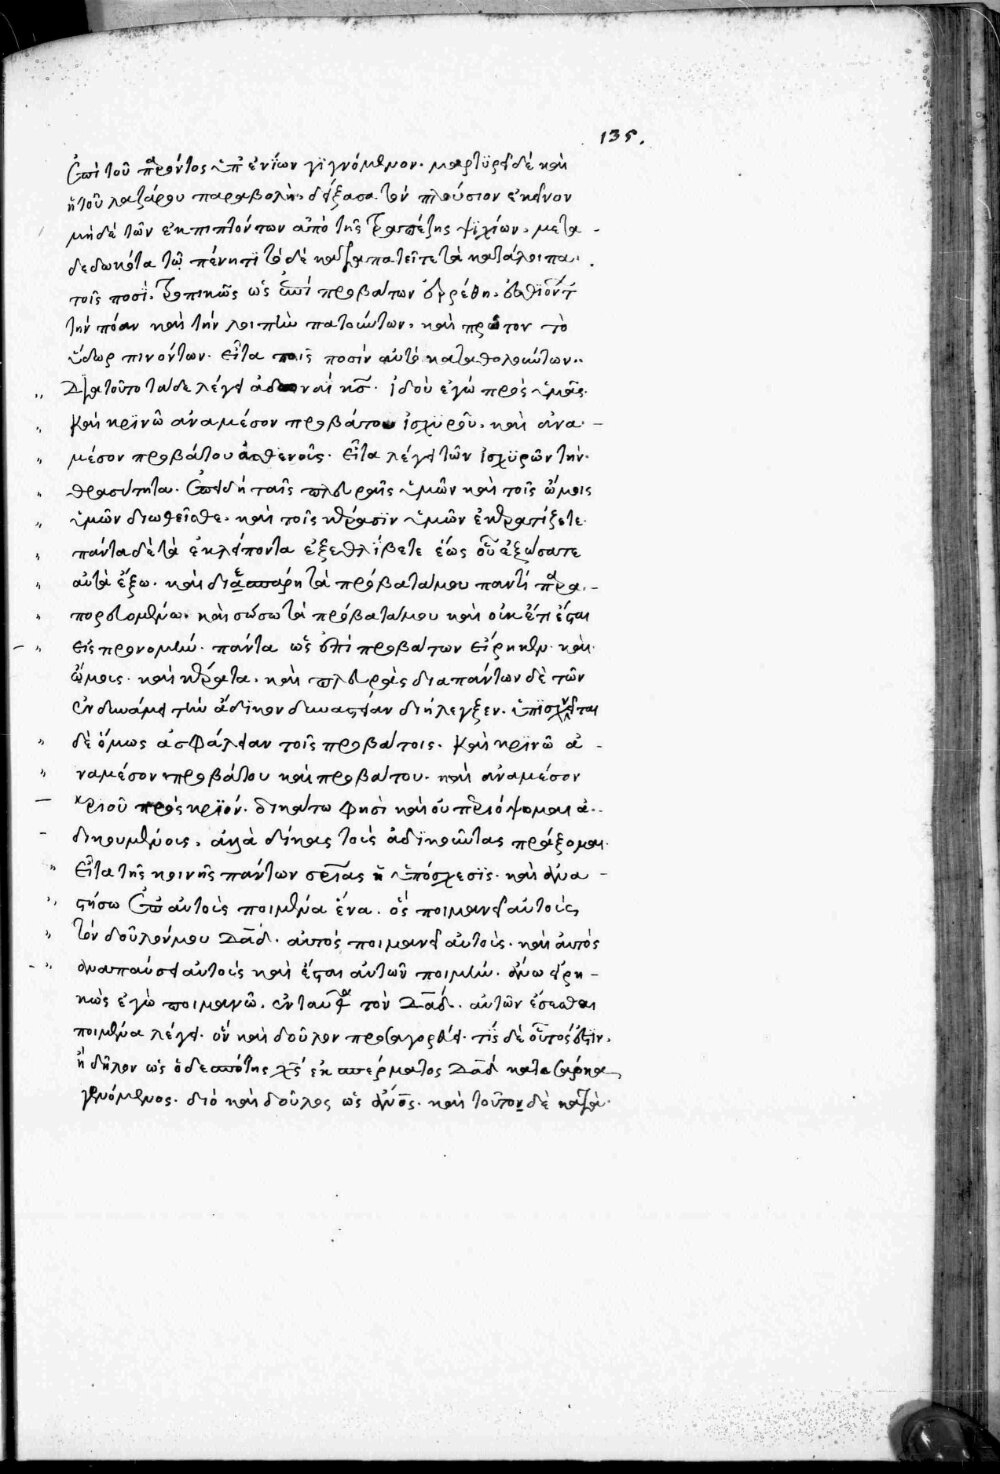 135.
ἐπὶ τοῦ παρόντος ὑπ' ἐνίων γϊγνόμενον. μαρτϋρεῖ δέ καὶ
ἡ τοῦ λαζάρου παραβολὴ, δείξασα τὸν πλούσιον ἐκεῖνον
μὴ δὲ τῶν ἐκπιπτόντων ἀπὸ τῆς τραπέζης ψϊχίων, μετα -
δεδωκότα τῶ πένητϊ τὸ δὲ κατεπατεῖτε τὰ κατάλοιπα.
τοῖς ποσὶ. τροπικῶς ὡς ἐπὶ προβάτων εὑρέθη. ἐσθϊόντων
τὴν πόαν καὶ τὴν λοιπὴν πατούντων. καὶ πρῶτον τὸ
ὕδωρ πινόντων. εἶτα τοῖς ποσὶν αὐτὸ καταθολούντων..
Διὰ τοῦτο τάδε λέγει ἀδωναὶ κς. ἰδοὺ ἐγὼ πρὸς ὑμᾶς.
καὶ κρϊνῶ ἀναμέσον προβάτου ἰσχϋροῦ. καὶ ἀνα -
μέσον προβάτου ἀσθενοῦς. εἶτα λέγει τῶν ἰσχϋρῶν τὴν
θρασύτητα. ἐπειδὴ ταῖς πλευραῖς ὑμῶν καὶ τοῖς ὤμοις
ὑμῶν διωθεῖσθε. καὶ τοῖς κέρασϊν ὑμῶν ἐκερατίζετε.
πάντα δὲ τὰ ἐκλείποντα ἐξεθλίβετε ἕως οὗ ἐξώσατε
αὐτὰ ἔξω. καὶ διεσπάρη τὰ πρόβατά μου παντὶ παρα -
πορευομένω. καὶ σώσω τὰ πρόβατά μου καὶ οὐκ ἔτι ἔσται
εἰς προνομὴν. πάντα ὡς ἐπὶ προβάτων εἴρηκεν. καὶ
ὤμοις. καὶ κέρατα. καὶ πλευρὰς διαπάντων δὲ τῶν
ἐν δυνάμει τὴν ἄδϊκον δυναστείαν διήλεγξεν. ὑπϊσχνεῖται
δὲ ὅμως ἀσφάλειαν τοῖς προβάτοις. καὶ κρϊνῶ ἀ -
ναμέσον προβάτου καὶ προβάτου. καὶ ἀναμέσον
κριοῦ πρὸς κρϊόν. δικάσω φησὶ καὶ οὐ περιόψομαι ἀ -
δικουμένοις. ἀλλὰ δίκας τοὺς ἀδϊκοῦντας πράξομαι.
εἶτα τῆς κοινῆς πάντων σωτηρίας ἡ ὑπόσχεσϊς. καὶ ἀνα -
στήσω ἐπ' αὐτοὺς ποιμένα ἕνα. ὃς ποιμανεῖ αὐτούς,
τὸν δοῦλόν μου Δαδ. αὐτὸς ποιμανεῖ αὐτοὺς. καὶ αὐτὸς
ἀναπαύσει αὐτοὺς καὶ ἔσται αὐτῶν ποιμὴν. ἄνω εἰρη -
κὼς ἐγὼ ποιμανῶ. ἐνταῦθα τὸν Δαδ. αὐτῶν ἔσεσθαι
ποιμένα λέγει. ὃν καὶ δοῦλον προσαγορεύει. τίς δὲ οὗτός ἐστϊν.
ἢ δῆλον ὡς ὁ δεσπότης χς ἐκ σπέρματος Δαδ κατὰ σάρκα
γενόμενος. διὸ καὶ δοῦλος ὡς ἄνος. καὶ τοῦτον δὲ κατὰ